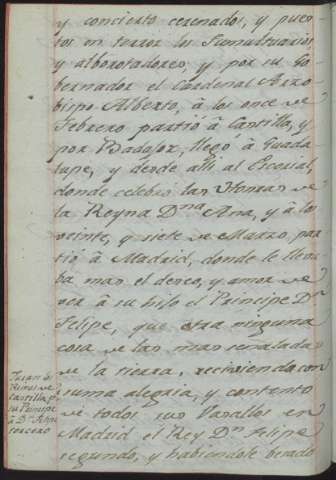 y concierto cerenados, y pues
tos en terror los Tumultuarios
y alborotadores, y por su Go
bernador el Cardenal Arzo
bispo Alberto, â los once de
Febrero partiò â Castilla, y
por Badajoz, llegò â Guada
lupe, y desde alli al Escorial,
donde celebrò las Honras de
la Reyna D.ña Ana, y â los
veinte, y siete de Marzo, par
tiò â Madrid, donde le lleva
ba mas el deseo, y amor de
ver â su hijo el Principe D.n
Felipe, que otra ninguna
cosa de las mas señaladas
de la tierra, recibiendo con
suma alegria, y contento
de todos sus Vasallos en
Madrid el Rey D.n Felipe
segundo, y habiendole besado
Juran los
Reinos de
Castilla, p.r
su Principe
â D.n Felipe
tercero